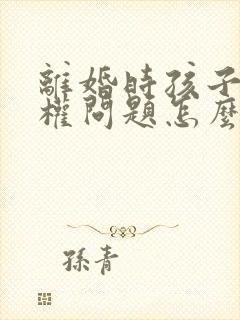 離婚時孩子
權問題怎麼
孫青